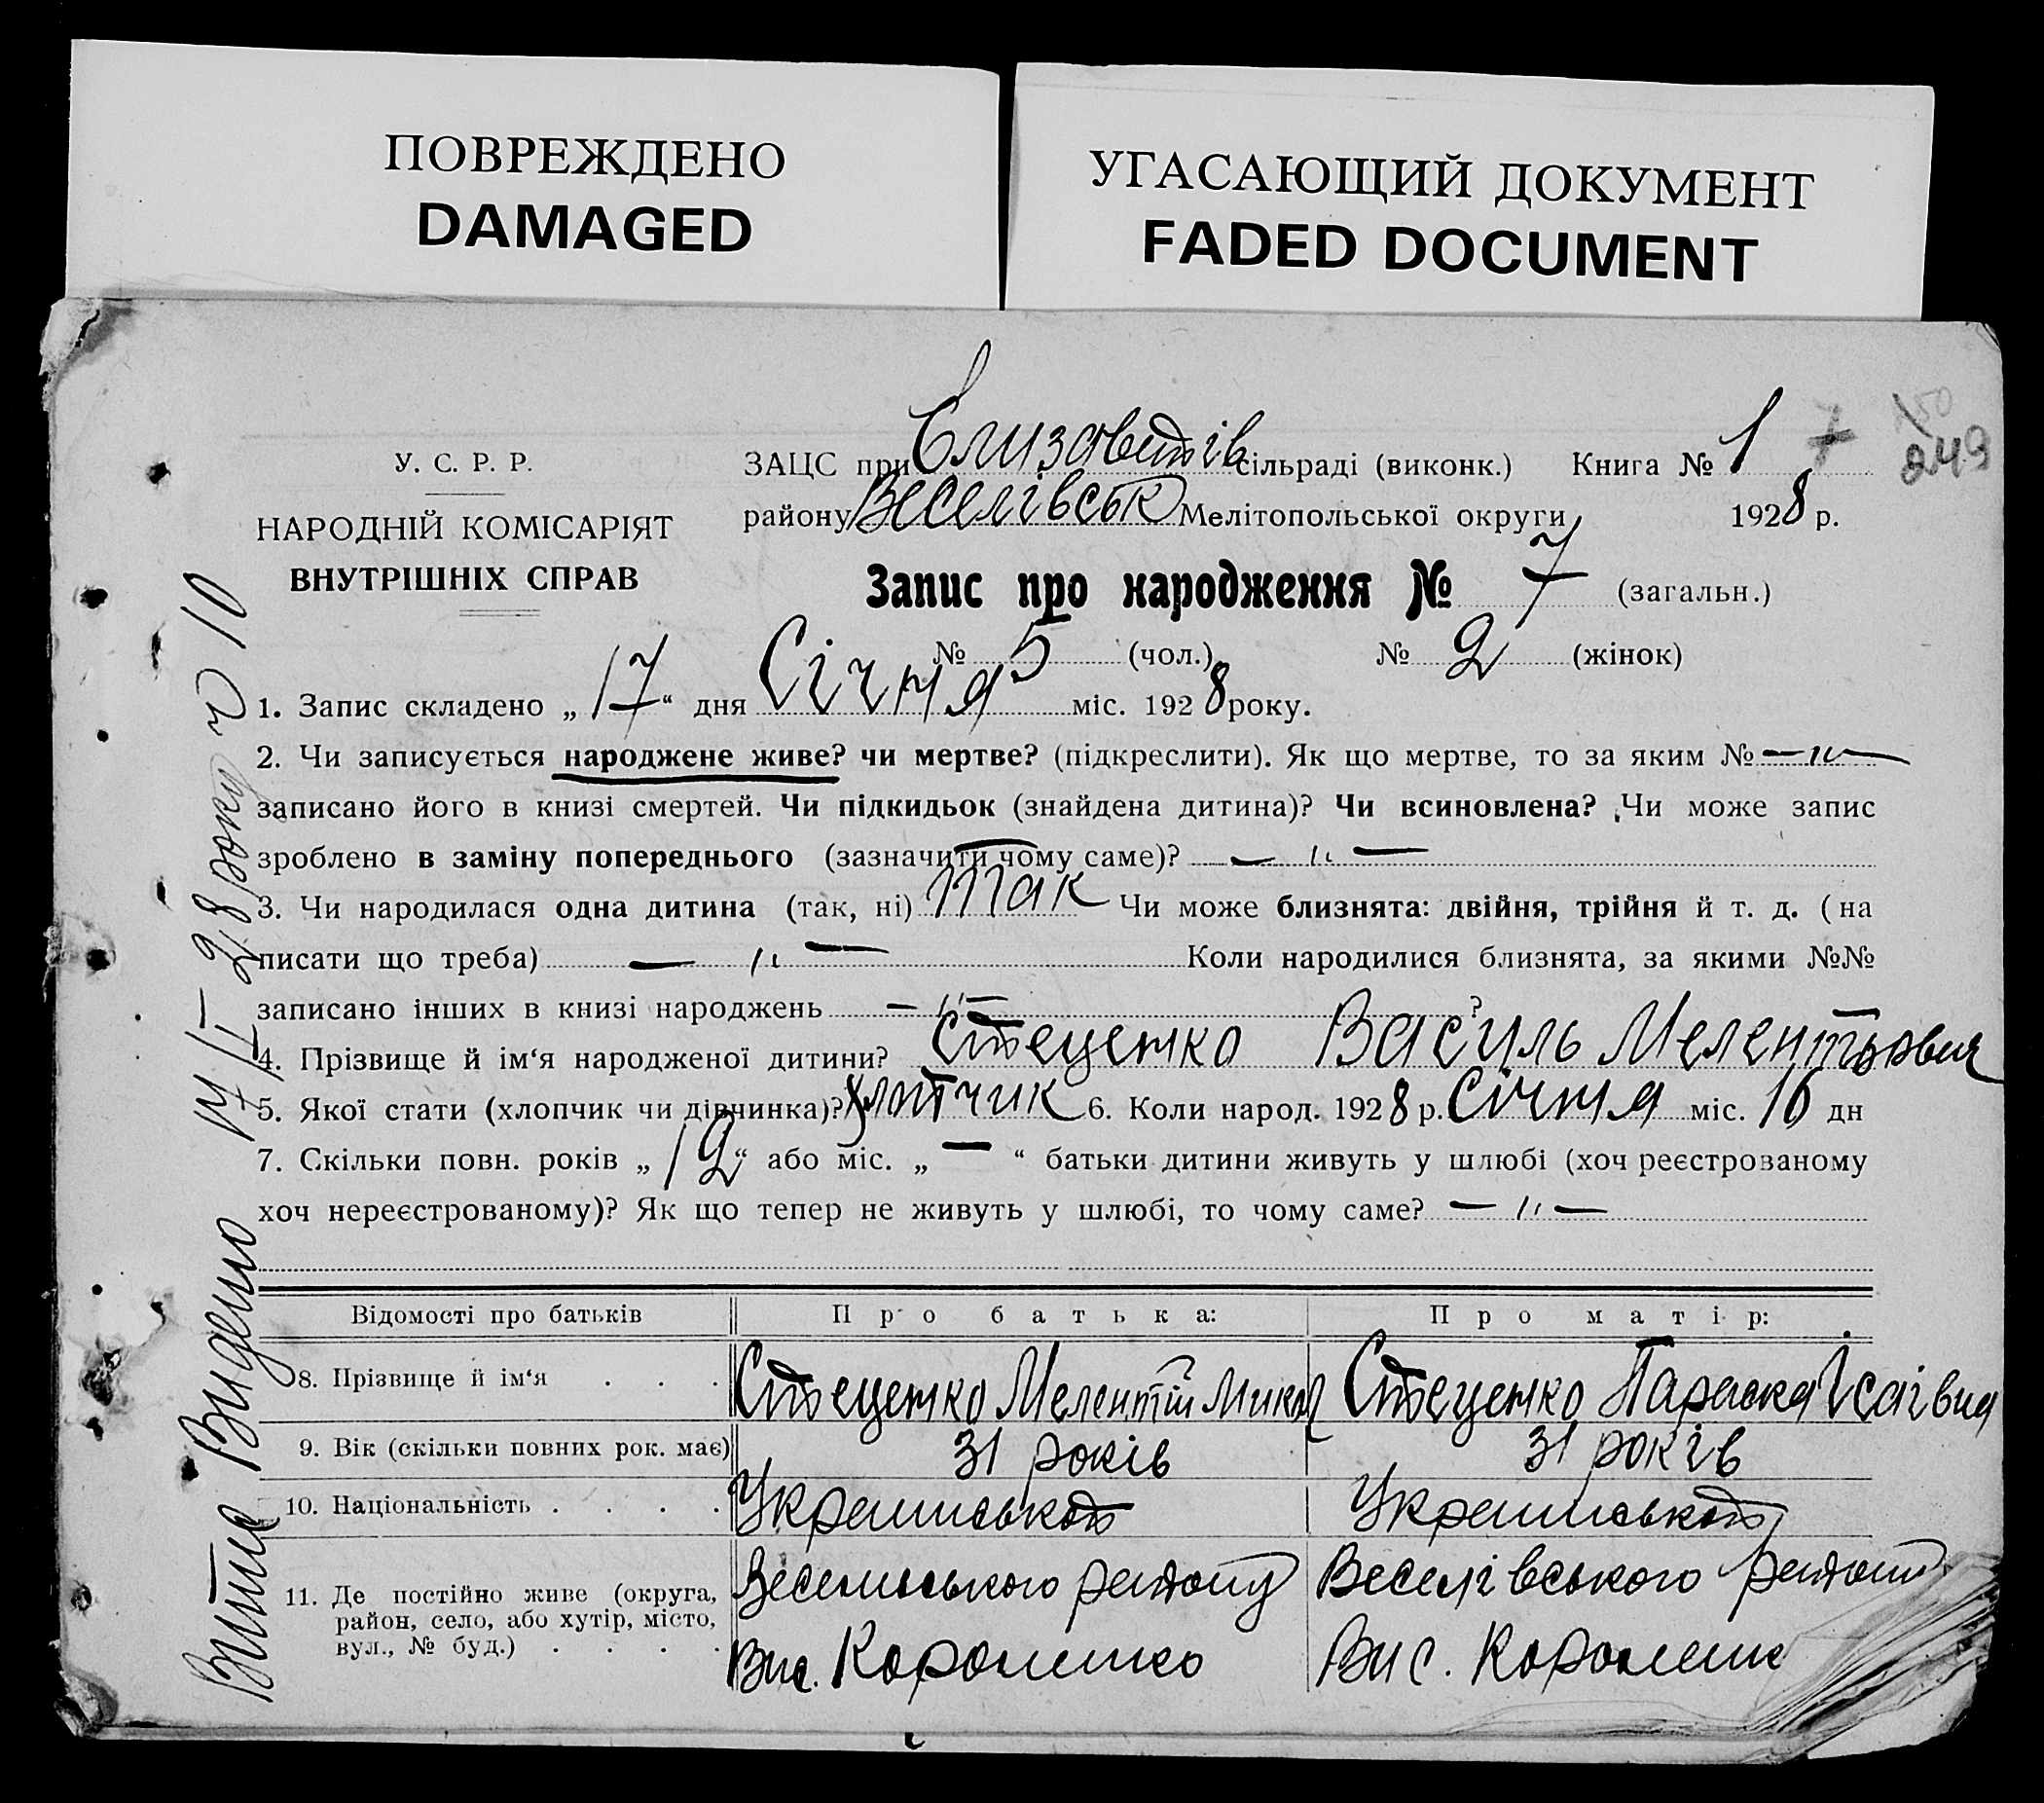 ПОВРЕЖДЕНО
DAMAGED
УГАСАЮЩИЙ ДОКУМЕНТ
FADED DOCUMENT
249
У. С. Р. Р.
НАРОДНІЙ КОМІСАРІЯТ
ВНУТРІШНІХ СПРАВ
ЗАЦС при Єлизаветів сільраді (виконк.) Книга № 1 7
району Веселівськ Мелітопольської округи 1928 р.
Запис про народження № 7 (загальн.)
№ 5 (чол.) № 2 (жінок)
1. Запис складено „17“ дня Січня міс. 1928 року.
2. Чи записується народжене живе? чи мертве? (підкреслити). Як що мертве, то за яким № — „ —
записано його в книзі смертей. Чи підкидьок (знайдена дитина)? Чи всиновлена? Чи може запис
зроблено в заміну попереднього (зазначити чому саме)? — „ —
3. Чи народилася одна дитина (так, ні) Так Чи може близнята: двійня, трійня й т. д. (на
писати що треба) — „ — Коли народилися близнята, за якими №№
записано інших в книзі народжень — „ — ?
4. Прізвище й ім‘я народженої дитини? Стеценко Василь Мелентьович
5. Якої стати (хлопчик чи дівчинка)? хлопчик 6. Коли народ. 1928 р. Січня міс. 16 дн
7. Скільки повн. років „12“ або міс. „—“ батьки дитини живуть у шлюбі (хоч реєстрованому
хоч нереєстрованому)? Як що тепер не живуть у шлюбі, то чому саме? — „ —
Відомості про батьків Про батька: Про матір:
8. Прізвище й ім‘я . . . Стеценко Мелентій Микол Стеценко Параска Ісаівна
9. Вік (скільки повних рок. має) 31 років 31 років
10. Національність . . . . Українською Українською
11. Де постійно живе (округа, район, село, або хутір, місто, вул., № буд.) . . . .
Веселівського району Веселівського району
Вис. Короленко Вис. Короленк
Витяг Видано 17/II 28 року ч 10